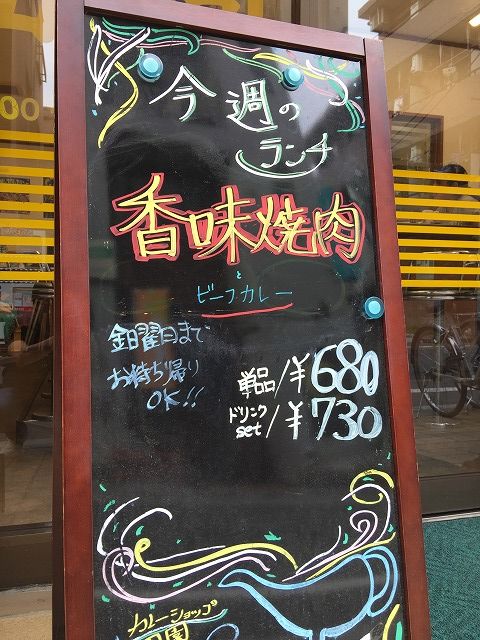 00
今週の
ランチ
香味焼肉
と
ビーフカレー
金曜日まで
お持ち帰り
OK!!
単品/¥680
ドリンク
set/¥730
カレーショップ